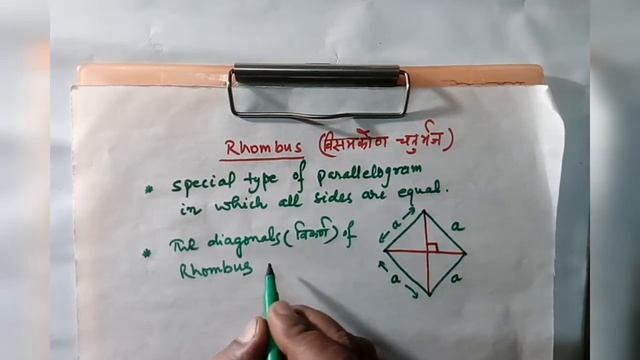 Rhombus (विसमकोण चतुर्भुज)
* special type of parallelogram
in which all sides are equal.
* The diagonals (विकर्ण) of
Rhombus
a
a
a
a